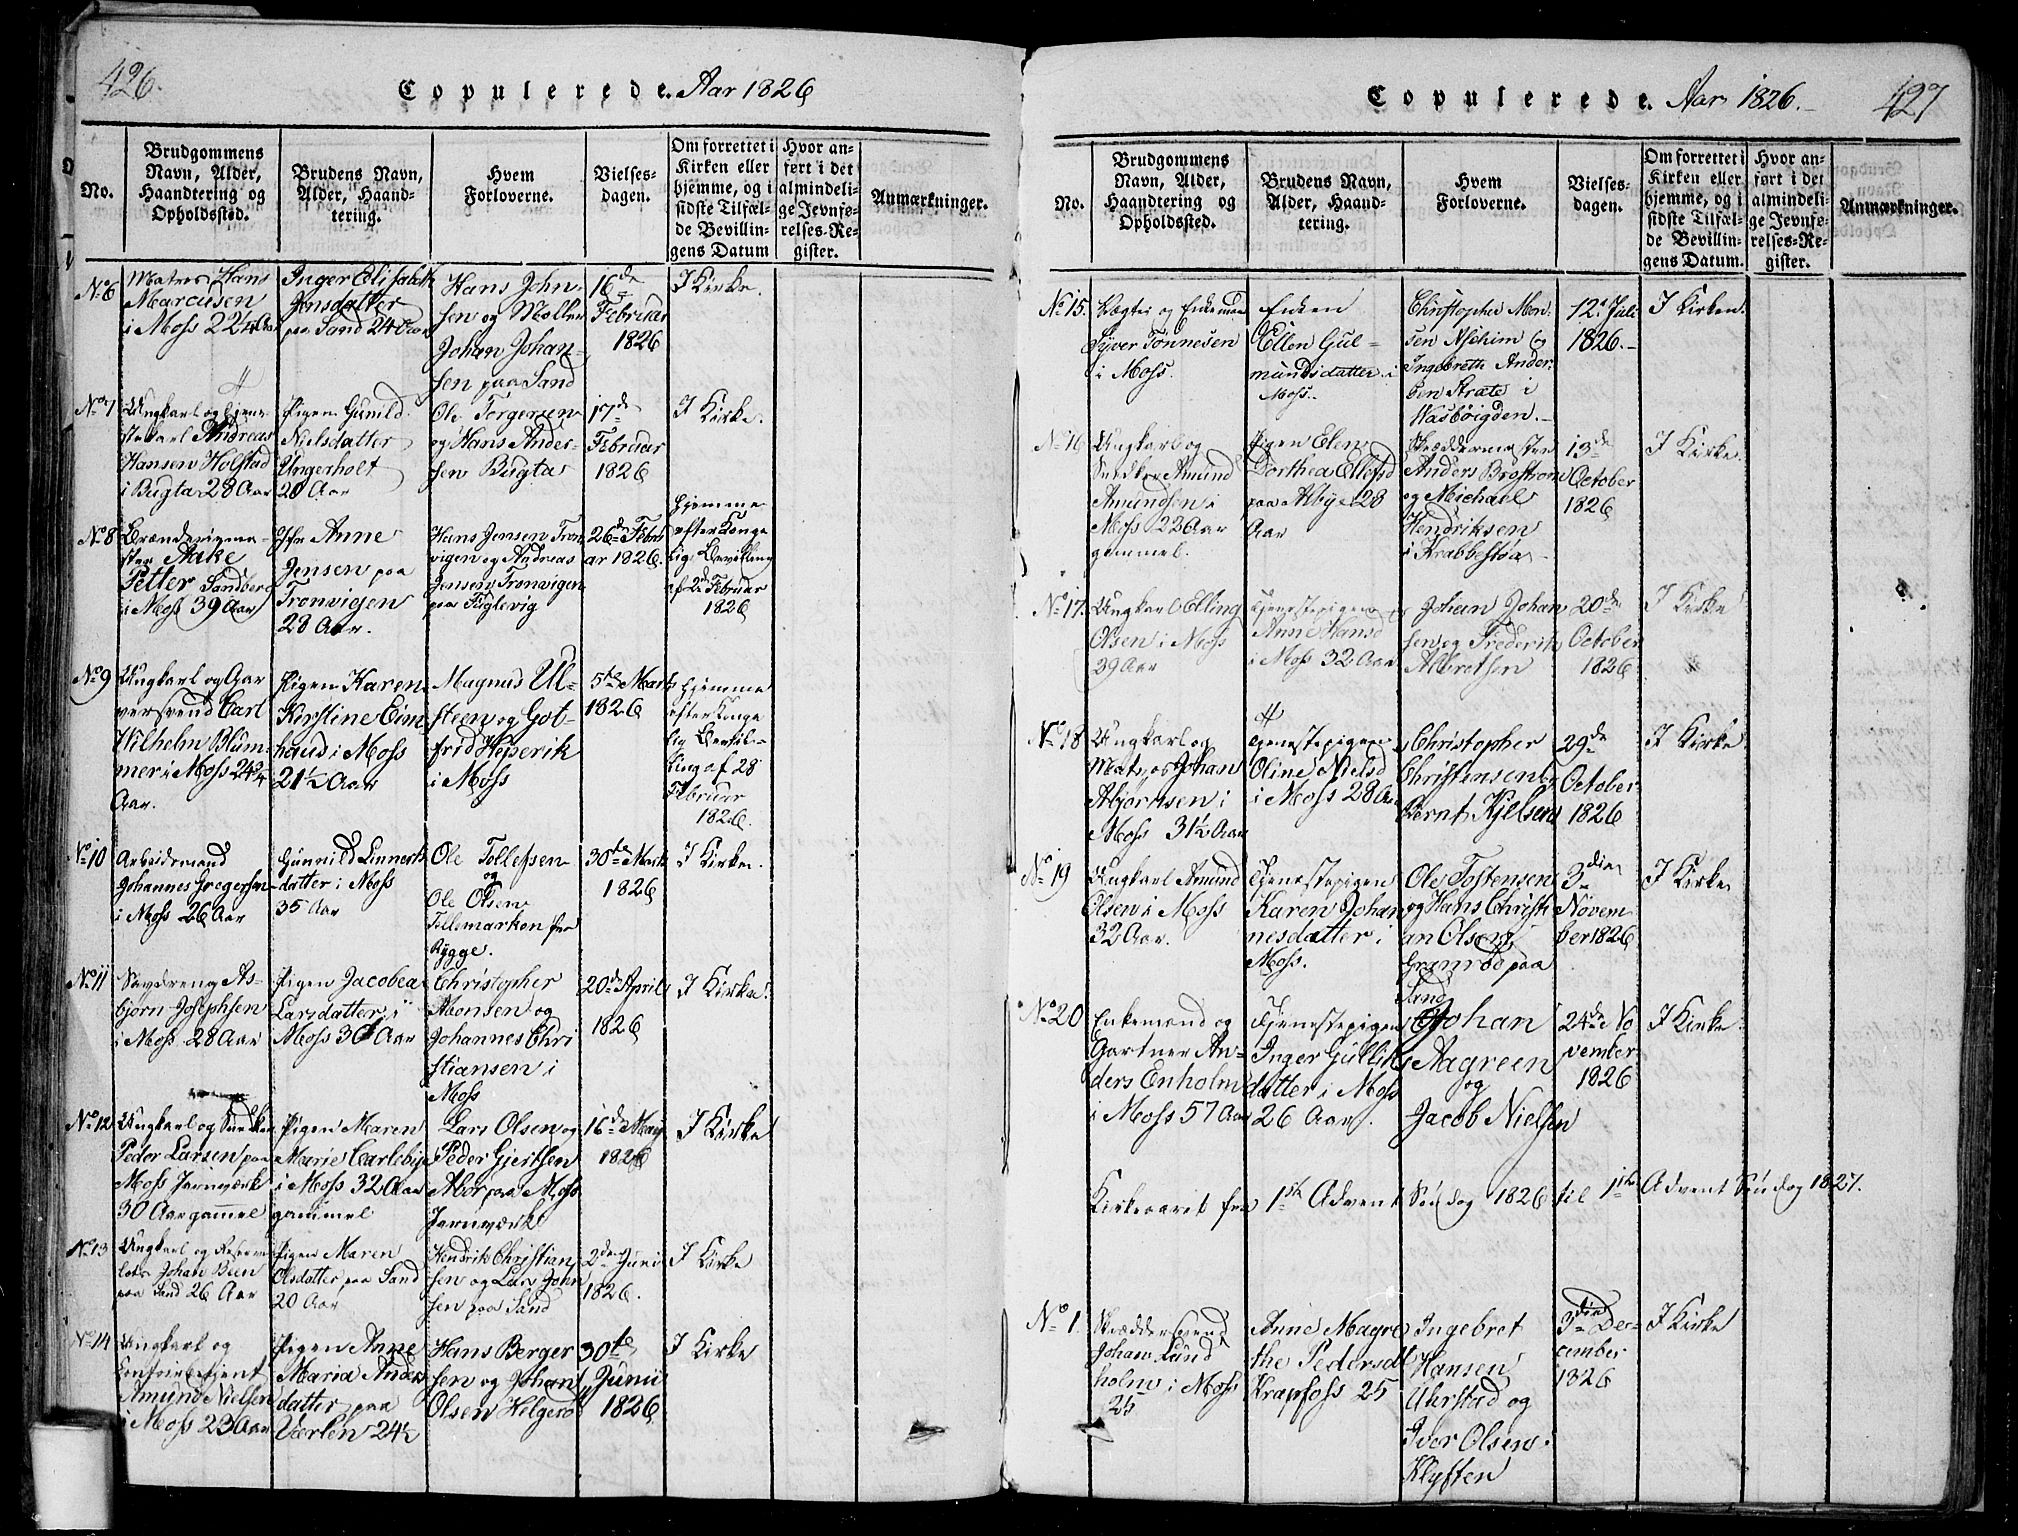 426.
Copulerede. Aar 1826
No.
Brudgommens Navn, Alder, Haandtering og Opholdssted.
Brudens Navn, Alder, Haandtering.
Hvem Forloverne.
Vielsesdagen.
Om forrettet i Kirken eller hjemme, og i sidste Tilfælde Bevillingens Datum
Hvor anført i det almindelige Jevnførelses-Register.
Anmærkninger.
No 6
Matros Hans
Marcusen
i Moss 22 1/4 Aar
Inger Elisabeth
Jensdatter
paa Sand 24 Aar
Hans John-
sen og Moller
Johan Johan-
sen paa Sand
16de
Februar
1826
I Kirke.
No 7
Ungkarl og tjene-
stekarl Andreas
Hansen Holstad
i Bugta 28 Aar
Pigen Gunild
Nielsdatter
Ungerholt
20 Aar
Ole Torgersen
og Hans Ander-
sen Bugta
17de
Februar
1826
I Kirke.
No 8
Brænderime-
ster Aake
Petter Sandberg
i Moss 39 Aar
Jfr Anne
Jensen paa
Tronvigen
28 Aar.
Hans Jensen Tron
vigen og Andreas
Jensen Tronvigen
paa Fuglevig
26de Febru
ar 1826.
Hjemme
efter Konge
lig Bevilling
af 2de Februar
1826
No 9
Ungkarl og Gar
versvend Carl
Wilhelm Blum-
mer i Moss 24 3/4
Aar.
Pigen Karen
Kirstine Eim
haus i Moss
21 1/2 Aar
Magnus Ul-
steen og Got-
frid Hejserik
i Moss
5te Marts
1826
Hjemme
efter Konge
lig Bevil-
ling af 28
Februar
1826.
No 10
Arbeidsmand
Johannes Gregersen
i Moss 26 Aar
Gunnild Linnerts
datter i Moss
35 Aar
Ole Tollefsen
og
Ole Olsen
Tillemarken fra
Rygge.
30te Marts
1826
I Kirke.
No 11
Savdreng As-
bjørn Josephsen
i Moss 28 Aar
Pigen Jacobea
Larsdatter i
Moss 30 Aar
Christopher
Monsen og
Johannes Chri
stiansen i
Moss
20de April
1826
I Kirke.
No 12
Ungkarl og Snedker
Peder Larsen paa
Moss Jernværk
30 Aar gammel
Pigen Maren
Marie Carlebye
i Moss 32 Aar
gammel
Lars Olsen og
Peder Gjertsen
Abor paa Moss
Jernværk
16de May
1826
I Kirke
No 13
Ungkarl og
Johan Been
paa Sand 26 Aar
Pigen Maren
Olsdatter paa Sand
20 Aar
Hendrik Christian
sen og Lars John
sen paa Sand
2den Juni
1826.
I Kirke
No 14
Ungkarl og
Amund Nielsen
i Moss 23 Aar
Pigen Anne
Maria Anders
datter paa
Værlen 24 1/2
Hans Berger
sen og Johan
Olsen Helgerø
30te
Junii
1826
I Kirke
Copulerede. Aar 1826.
427
No.
Brudgommens Navn, Alder, Haandtering og Opholdssted.
Brudens Navn, Alder, Haandtering.
Hvem Forloverne.
Vielsesdagen.
Om forrettet i Kirken eller hjemme, og i sidste Tilfælde Bevillingens Datum.
Hvor anført i det almindelige Jevnførelses-Register.
Anmærkninger.
No 15.
Vægter og Enkemand
Syver Tønnesen
i Moss.
Enken
Ellen Gul-
mundsdatter i
Moss.
Christopher Mon-
sen Aschim og
Ingebreth Ander-
sen Krate i
Wasbøigden.
12. Juli
1826.
I Kirken.
No 16
Ungkarl og
Snedker Amund
Amundsen i
Moss 23 Aar
gammel.
Pigen Elen
Dorthea Ellefsd
paa Albye 28
Aar
Skræddermester
Anders Brostrøm
og Michael
Hendriksen
i Krabbestøa
13de
October
1826
I Kirke.
No 17.
Ungkarl Elling
Olsen i Moss
39 Aar
Tjenestepigen
Anne Hansd
i Moss 32 Aar
Johan Johan
sen og Frederik
Albretsen
20de
October
1826
I Kirke
No 18
Ungkarl og
Matros Johan
Abjørnsen i
Moss 31 1/2 Aar
Tjenestepigen
Oline Nielsd
i Moss 28 Aar
Christopher
Christensen og
Bernt Kjelsen
29de
October
1826
I Kirke
No 19
Ungkarl Amund
Olsen i Moss
32 Aar.
Tjenestepigen
Karen Johan
nesdatter i
Moss.
Ole Tostensen
og Hans Christi
an Olsen
Granrød paa
Sand
3die
Novem
ber 1826
I Kirke
No 20
Enkemand og
Gartner An-
ders Enholm
i Moss 57 Aar
Tjenestepigen
Inger Gulliks
datter i Moss
26 Aar.
Johan
Aagreen
og
Jacob Nielsen
24de No
vember
1826
I Kirke
Kirkeaaret fra 1ste Advent Søndag 1826 til 1ste Advent Søndag 1827.
No 1.
Skrædder Svend
Johan Lund
holm i Moss
25
Anne Magre
the Pedersdt
Krapfoss 25
Ingebret
Hansen
Uhrstad og
Iver Olsen
Klyften
3die De-
cember
1826
I Kirke